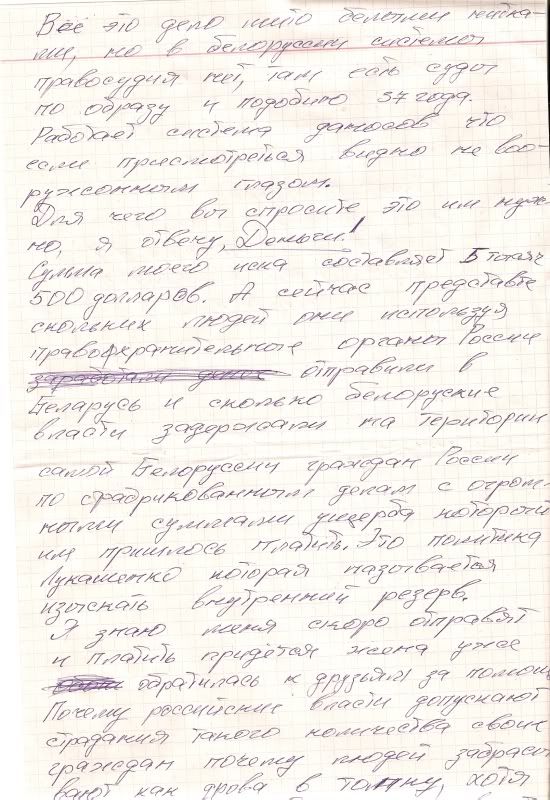 Всё это дело шито белыми нитка-
ми, но в белоруссии системы
правосудия нет, там есть суды
по образу и подобию 37 года.
Работает система даносов что
если присмотреться видно не воо-
ружонным глазом.
Для чего вы спросите это им нуж-
но, я отвечу, Деньги!
Сумма моего иска составляет 5 тысяч
500 долларов. А сейчас представте
скольких людей они используя
правоохранительные органы России
отправили в
Беларусь и сколько белоруские
власти задержали на територии
самой Белоруссии граждан России
по сфабрикованным делам с огром-
ными суммами ущерба которые
им пришлось платить. Это политика
Лукашенко которая называется
изыскать внутренний резерв.
Я знаю меня скоро отправят
и платить придётся жена уже
обратилась к друзьям за помощью
Почему российские власти допускают
страдания такого количества своих
граждан почему людей забрасы-
вают как дрова в топку, хотя